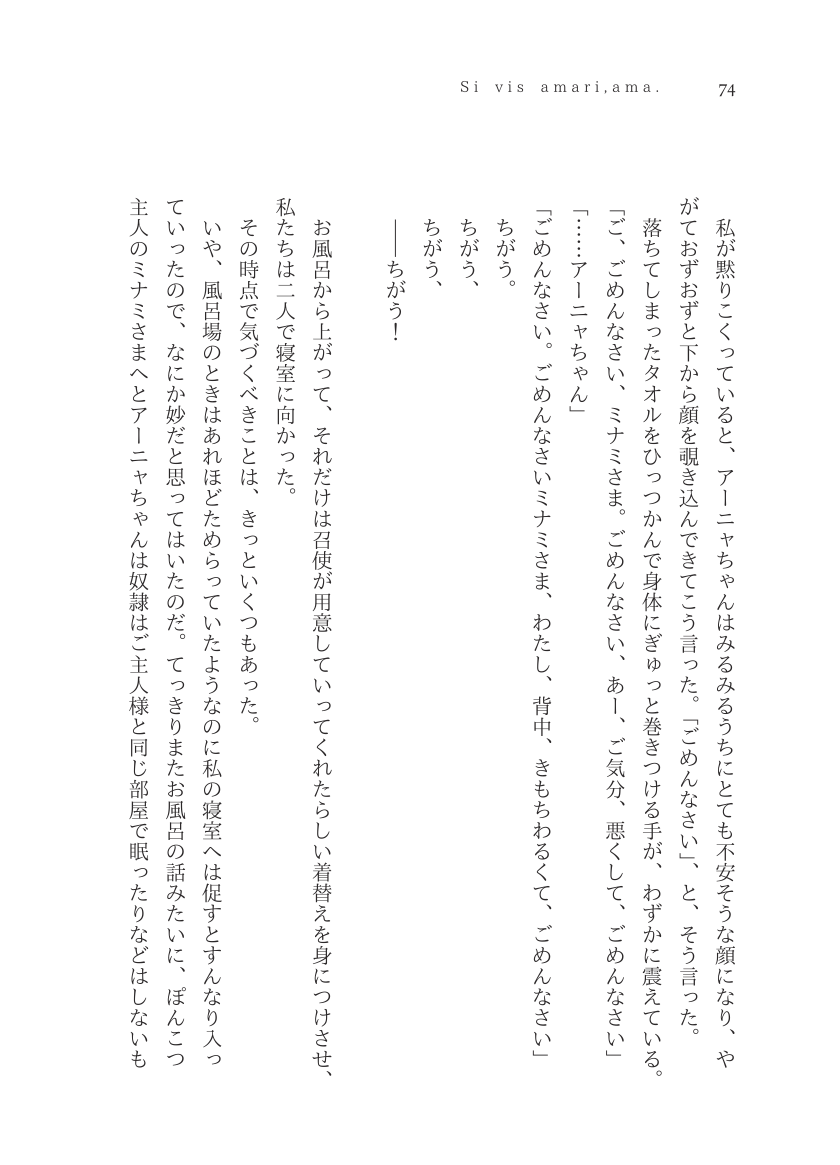 Si vis amari,ama.
74
私が黙りこくっていると、アーニャちゃんはみるみるうちにとても不安そうな顔になり、や
がておずおずと下から顔を覗き込んできてこう言った。「ごめんなさい」、と、そう言った。
落ちてしまったタオルをひっつかんで身体にぎゅっと巻きつける手が、わずかに震えている。
「ご、ごめんなさい、ミナミさま。ごめんなさい、あー、ご気分、悪くして、ごめんなさい」
「……アーニャちゃん」
「ごめんなさい。ごめんなさいミナミさま、わたし、背中、きもちわるくて、ごめんなさい」
ちがう。
ちがう、
ちがう、
――ちがう！
お風呂から上がって、それだけは召使が用意していってくれたらしい着替えを身につけさせ、
私たちは二人で寝室に向かった。
その時点で気づくべきことは、きっといくつもあった。
いや、風呂場のときはあれほどためらっていたようなのに私の寝室へは促すとすんなり入っ
ていったので、なにか妙だと思ってはいたのだ。てっきりまたお風呂の話みたいに、ぽんこつ
主人のミナミさまへとアーニャちゃんは奴隷はご主人様と同じ部屋で眠ったりなどはしないも